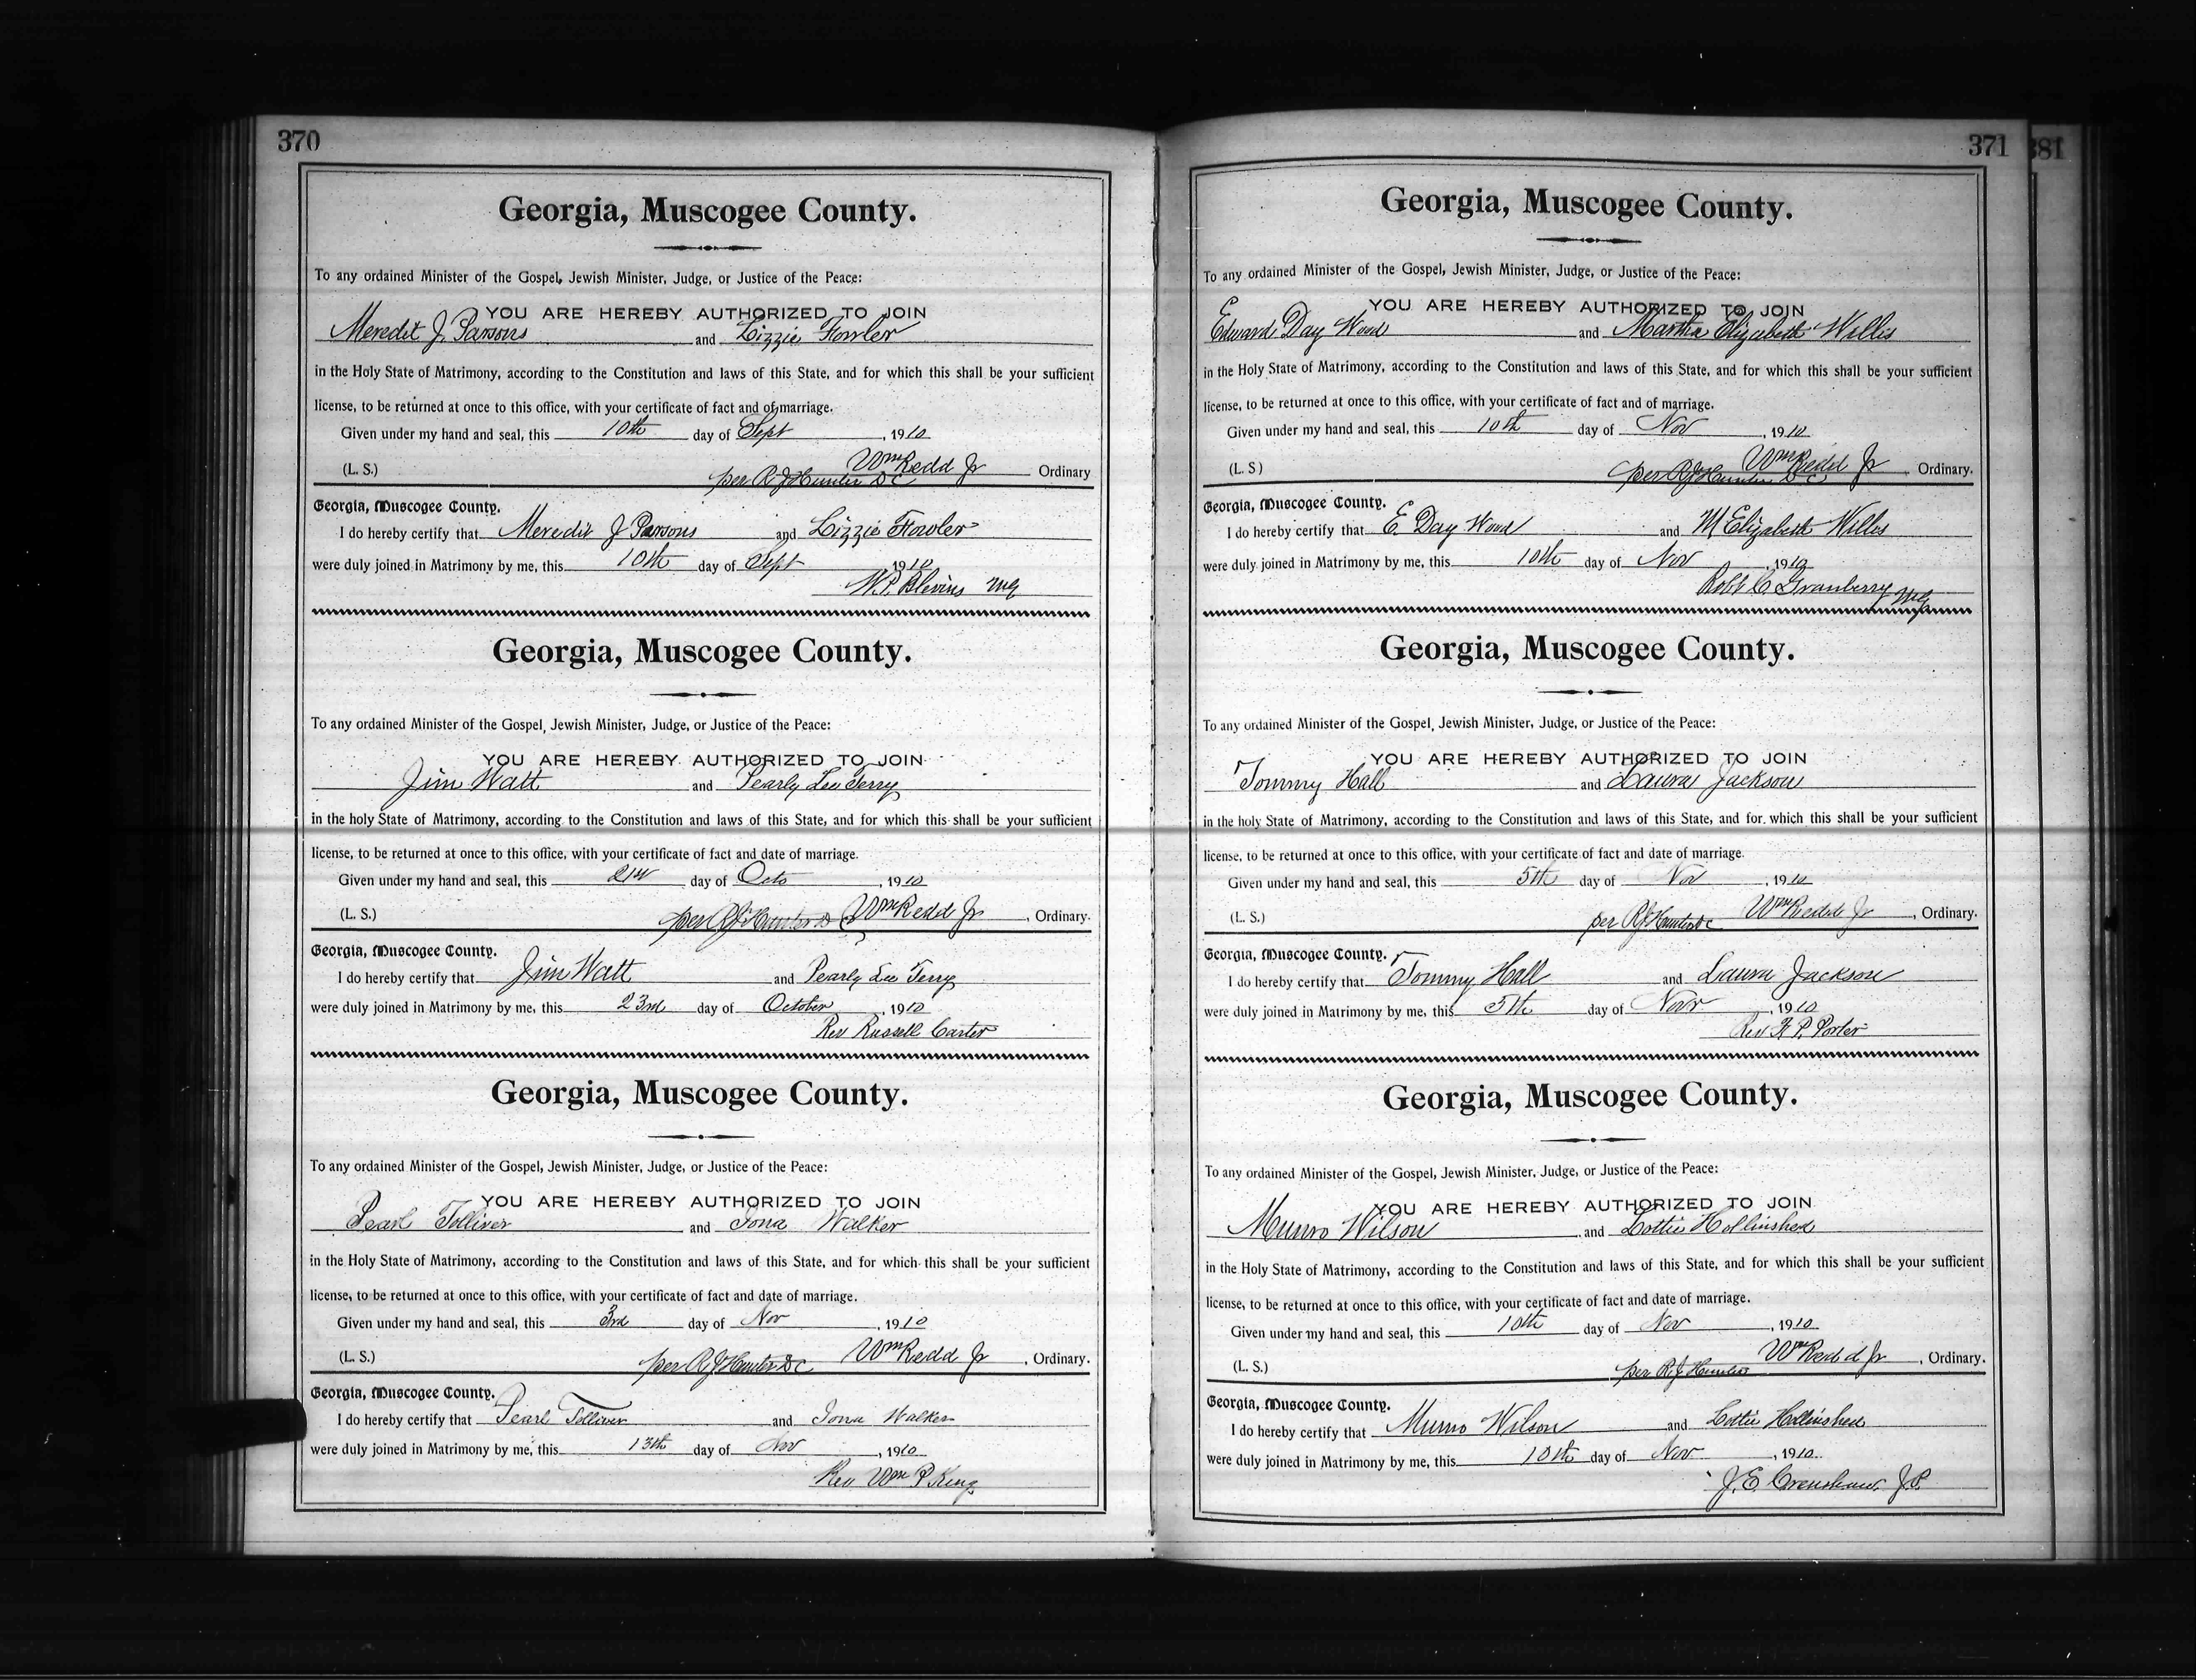 370
Georgia, Muscogee County.
To any ordained Minister of the Gospel, Jewish Minister, Judge, or Justice of the Peace:
YOU ARE HEREBY AUTHORIZED TO JOIN
Meredit J. Parsons and Lizzie Fowler
in the Holy State of Matrimony, according to the Constitution and laws of this State, and for which this shall be your sufficient
license, to be returned at once to this office, with your certificate of fact and of marriage.
Given under my hand and seal, this 10th day of Sept, 1910
(L. S.) per R J Hunter D C Wm Redd Jr Ordinary
Georgia, Muscogee County.
I do hereby certify that Meredit J Parsons and Lizzie Fowler
were duly joined in Matrimony by me, this 10th day of Sept 1910
W. P. Blevins MG
Georgia, Muscogee County.
To any ordained Minister of the Gospel, Jewish Minister, Judge, or Justice of the Peace:
YOU ARE HEREBY AUTHORIZED TO JOIN
Jim Watt and Pearly Lee Terry
in the holy State of Matrimony, according to the Constitution and laws of this State, and for which this shall be your sufficient
license, to be returned at once to this office, with your certificate of fact and date of marriage.
Given under my hand and seal, this 21st day of Octo, 1910
(L. S.) per R J Hunter D C Wm Redd Jr, Ordinary.
Georgia, Muscogee County.
I do hereby certify that Jim Watt and Pearly Lee Terry
were duly joined in Matrimony by me, this 23rd day of October, 1910
Rev Russell Carter
Georgia, Muscogee County.
To any ordained Minister of the Gospel, Jewish Minister, Judge, or Justice of the Peace:
YOU ARE HEREBY AUTHORIZED TO JOIN
Pearl Tolliver and Iona Walker
in the Holy State of Matrimony, according to the Constitution and laws of this State, and for which this shall be your sufficient
license, to be returned at once to this office, with your certificate of fact and date of marriage.
Given under my hand and seal, this 3rd day of Nov, 1910
(L. S.) per R J Hunter D C Wm Redd Jr, Ordinary.
Georgia, Muscogee County.
I do hereby certify that Pearl Tolliver and Iona Walker
were duly joined in Matrimony by me, this 13th day of Nov, 1910
Rev Wm P King
371
381
Georgia, Muscogee County.
To any ordained Minister of the Gospel, Jewish Minister, Judge, or Justice of the Peace:
YOU ARE HEREBY AUTHORIZED TO JOIN
Edward Day Wood and Martha Elizabeth Willis
in the Holy State of Matrimony, according to the Constitution and laws of this State, and for which this shall be your sufficient
license, to be returned at once to this office, with your certificate of fact and of marriage.
Given under my hand and seal, this 10th day of Nov, 1910
(L. S) per R J Hunter D C, Wm Redd Jr. Ordinary.
Georgia, Muscogee County.
I do hereby certify that E. Day Wood and M Elizabeth Willis
were duly joined in Matrimony by me, this 10th day of Nov, 1910
Robt C. Granberry MG
Georgia, Muscogee County.
To any ordained Minister of the Gospel, Jewish Minister, Judge, or Justice of the Peace:
YOU ARE HEREBY AUTHORIZED TO JOIN
Tommy Hall and Laura Jackson
in the holy State of Matrimony, according to the Constitution and laws of this State, and for which this shall be your sufficient
license, to be returned at once to this office, with your certificate of fact and date of marriage.
Given under my hand and seal, this 5th day of Nov, 1910
(L. S.) per R J Hunter D C Wm Redd Jr, Ordinary.
Georgia, Muscogee County.
I do hereby certify that Tommy Hall and Laura Jackson
were duly joined in Matrimony by me, this 5th day of Novr, 1910
Rev F. P. Porter
Georgia, Muscogee County.
To any ordained Minister of the Gospel, Jewish Minister, Judge, or Justice of the Peace:
YOU ARE HEREBY AUTHORIZED TO JOIN
Munro Wilson and Lottie Hollinshed
in the Holy State of Matrimony, according to the Constitution and laws of this State, and for which this shall be your sufficient
license, to be returned at once to this office, with your certificate of fact and date of marriage.
Given under my hand and seal, this 10th day of Nov, 1910
(L. S.) per R J Hunter Wm Redd Jr, Ordinary.
Georgia, Muscogee County.
I do hereby certify that Munro Wilson and Lottie Hollinshed
were duly joined in Matrimony by me, this 10th day of Nov, 1910
J. E. Crenshaw. J.P.